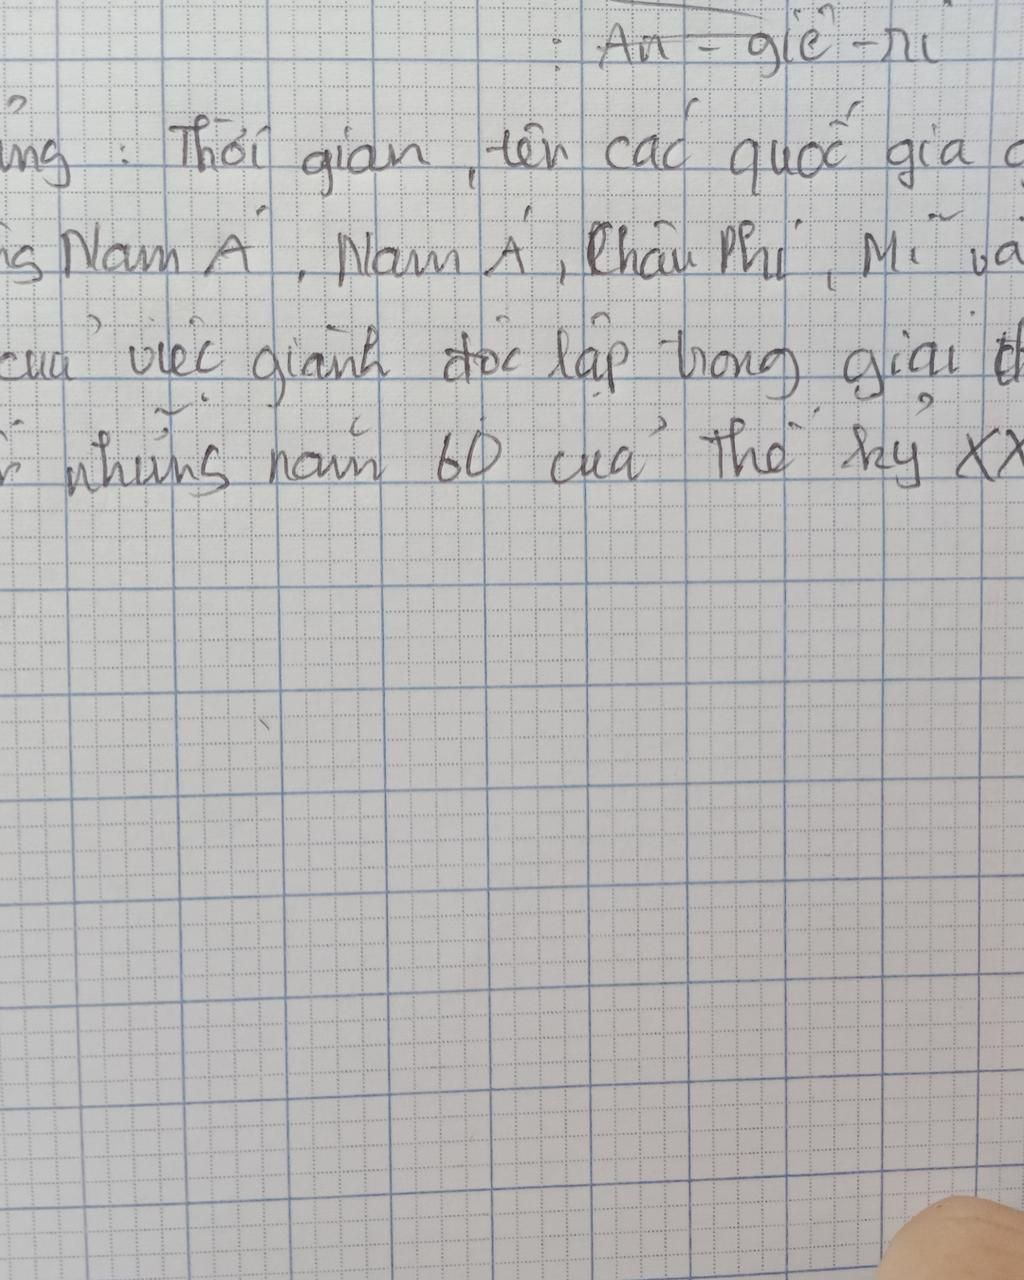 : An - giê - ri
ảng : Thời gian, tên các quốc gia
Nam Á, Nam Á, Châu Phi, Mĩ và
của việc giành độc lập trong giai
những năm 60 của thế kỷ XX